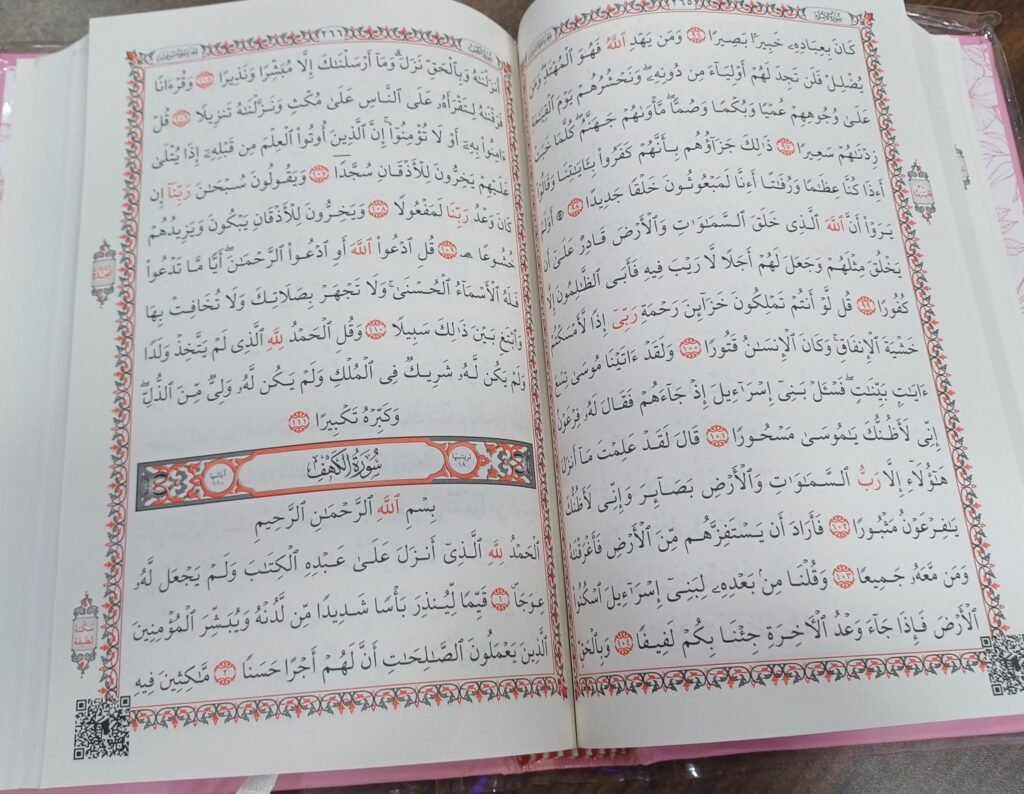 ٢٦٥
كَانَ بِعِبَادِهِۦ خَبِيرًۢا بَصِيرًا ٩٦ وَمَن يَهْدِ ٱللَّهُ فَهُوَ ٱلْمُهْتَدِ وَمَن
يُضْلِلْ فَلَن تَجِدَ لَهُمْ أَوْلِيَآءَ مِن دُونِهِۦ وَنَحْشُرُهُمْ يَوْمَ ٱلْقِيَٰمَةِ
عَلَىٰ وُجُوهِهِمْ عُمْيًا وَبُكْمًا وَصُمًّا مَّأْوَىٰهُمْ جَهَنَّمُ كُلَّمَا خَبَتْ
زِدْنَٰهُمْ سَعِيرًا ٩٧ ذَٰلِكَ جَزَآؤُهُم بِأَنَّهُمْ كَفَرُوا۟ بِـَٔايَٰتِنَا وَقَالُوٓا۟
أَءِذَا كُنَّا عِظَٰمًا وَرُفَٰتًا أَءِنَّا لَمَبْعُوثُونَ خَلْقًا جَدِيدًا ٩٨ ۞ أَوَلَمْ
يَرَوْا۟ أَنَّ ٱللَّهَ ٱلَّذِى خَلَقَ ٱلسَّمَٰوَٰتِ وَٱلْأَرْضَ قَادِرٌ عَلَىٰٓ أَن
يَخْلُقَ مِثْلَهُمْ وَجَعَلَ لَهُمْ أَجَلًا لَّا رَيْبَ فِيهِ فَأَبَى ٱلظَّٰلِمُونَ إِلَّا
كُفُورًا ٩٩ قُل لَّوْ أَنتُمْ تَمْلِكُونَ خَزَآئِنَ رَحْمَةِ رَبِّىٓ إِذًا لَّأَمْسَكْتُمْ
خَشْيَةَ ٱلْإِنفَاقِ وَكَانَ ٱلْإِنسَٰنُ قَتُورًا ١٠٠ وَلَقَدْ ءَاتَيْنَا مُوسَىٰ تِسْعَ
ءَايَٰتٍۭ بَيِّنَٰتٍ فَسْـَٔلْ بَنِىٓ إِسْرَٰٓءِيلَ إِذْ جَآءَهُمْ فَقَالَ لَهُۥ فِرْعَوْنُ
إِنِّى لَأَظُنُّكَ يَٰمُوسَىٰ مَسْحُورًا ١٠١ قَالَ لَقَدْ عَلِمْتَ مَآ أَنزَلَ
هَٰٓؤُلَآءِ إِلَّا رَبُّ ٱلسَّمَٰوَٰتِ وَٱلْأَرْضِ بَصَآئِرَ وَإِنِّى لَأَظُنُّكَ
يَٰفِرْعَوْنُ مَثْبُورًا ١٠٢ فَأَرَادَ أَن يَسْتَفِزَّهُم مِّنَ ٱلْأَرْضِ فَأَغْرَقْنَٰهُ
وَمَن مَّعَهُۥ جَمِيعًا ١٠٣ وَقُلْنَا مِنۢ بَعْدِهِۦ لِبَنِىٓ إِسْرَٰٓءِيلَ ٱسْكُنُوا۟
ٱلْأَرْضَ فَإِذَا جَآءَ وَعْدُ ٱلْءَاخِرَةِ جِئْنَا بِكُمْ لَفِيفًا ١٠٤ وَبِٱلْحَقِّ
٢٦٦
أَنزَلْنَٰهُ وَبِٱلْحَقِّ نَزَلَ وَمَآ أَرْسَلْنَٰكَ إِلَّا مُبَشِّرًا وَنَذِيرًا ١٠٥ وَقُرْءَانًا
فَرَقْنَٰهُ لِتَقْرَأَهُۥ عَلَى ٱلنَّاسِ عَلَىٰ مُكْثٍ وَنَزَّلْنَٰهُ تَنزِيلًا ١٠٦ قُلْ
ءَامِنُوا۟ بِهِۦٓ أَوْ لَا تُؤْمِنُوٓا۟ إِنَّ ٱلَّذِينَ أُوتُوا۟ ٱلْعِلْمَ مِن قَبْلِهِۦٓ إِذَا يُتْلَىٰ
عَلَيْهِمْ يَخِرُّونَ لِلْأَذْقَانِ سُجَّدًا ١٠٧ وَيَقُولُونَ سُبْحَٰنَ رَبِّنَآ إِن
كَانَ وَعْدُ رَبِّنَا لَمَفْعُولًا ١٠٨ وَيَخِرُّونَ لِلْأَذْقَانِ يَبْكُونَ وَيَزِيدُهُمْ
خُشُوعًا ۩ ١٠٩ قُلِ ٱدْعُوا۟ ٱللَّهَ أَوِ ٱدْعُوا۟ ٱلرَّحْمَٰنَ أَيًّا مَّا تَدْعُوا۟
فَلَهُ ٱلْأَسْمَآءُ ٱلْحُسْنَىٰ وَلَا تَجْهَرْ بِصَلَاتِكَ وَلَا تُخَافِتْ بِهَا
وَٱبْتَغِ بَيْنَ ذَٰلِكَ سَبِيلًا ١١٠ وَقُلِ ٱلْحَمْدُ لِلَّهِ ٱلَّذِى لَمْ يَتَّخِذْ وَلَدًا
وَلَمْ يَكُن لَّهُۥ شَرِيكٌ فِى ٱلْمُلْكِ وَلَمْ يَكُن لَّهُۥ وَلِىٌّ مِّنَ ٱلذُّلِّ
وَكَبِّرْهُ تَكْبِيرًا ١١١
ترتيبها ١٨ سُورَةُ الكَهْفِ آياتها ١١٠
بِسْمِ ٱللَّهِ ٱلرَّحْمَٰنِ ٱلرَّحِيمِ
ٱلْحَمْدُ لِلَّهِ ٱلَّذِىٓ أَنزَلَ عَلَىٰ عَبْدِهِ ٱلْكِتَٰبَ وَلَمْ يَجْعَل لَّهُۥ
عِوَجَا ١ قَيِّمًا لِّيُنذِرَ بَأْسًا شَدِيدًا مِّن لَّدُنْهُ وَيُبَشِّرَ ٱلْمُؤْمِنِينَ
ٱلَّذِينَ يَعْمَلُونَ ٱلصَّٰلِحَٰتِ أَنَّ لَهُمْ أَجْرًا حَسَنًا ٢ مَّٰكِثِينَ فِيهِ
سَكْتَة لَطِيفَة